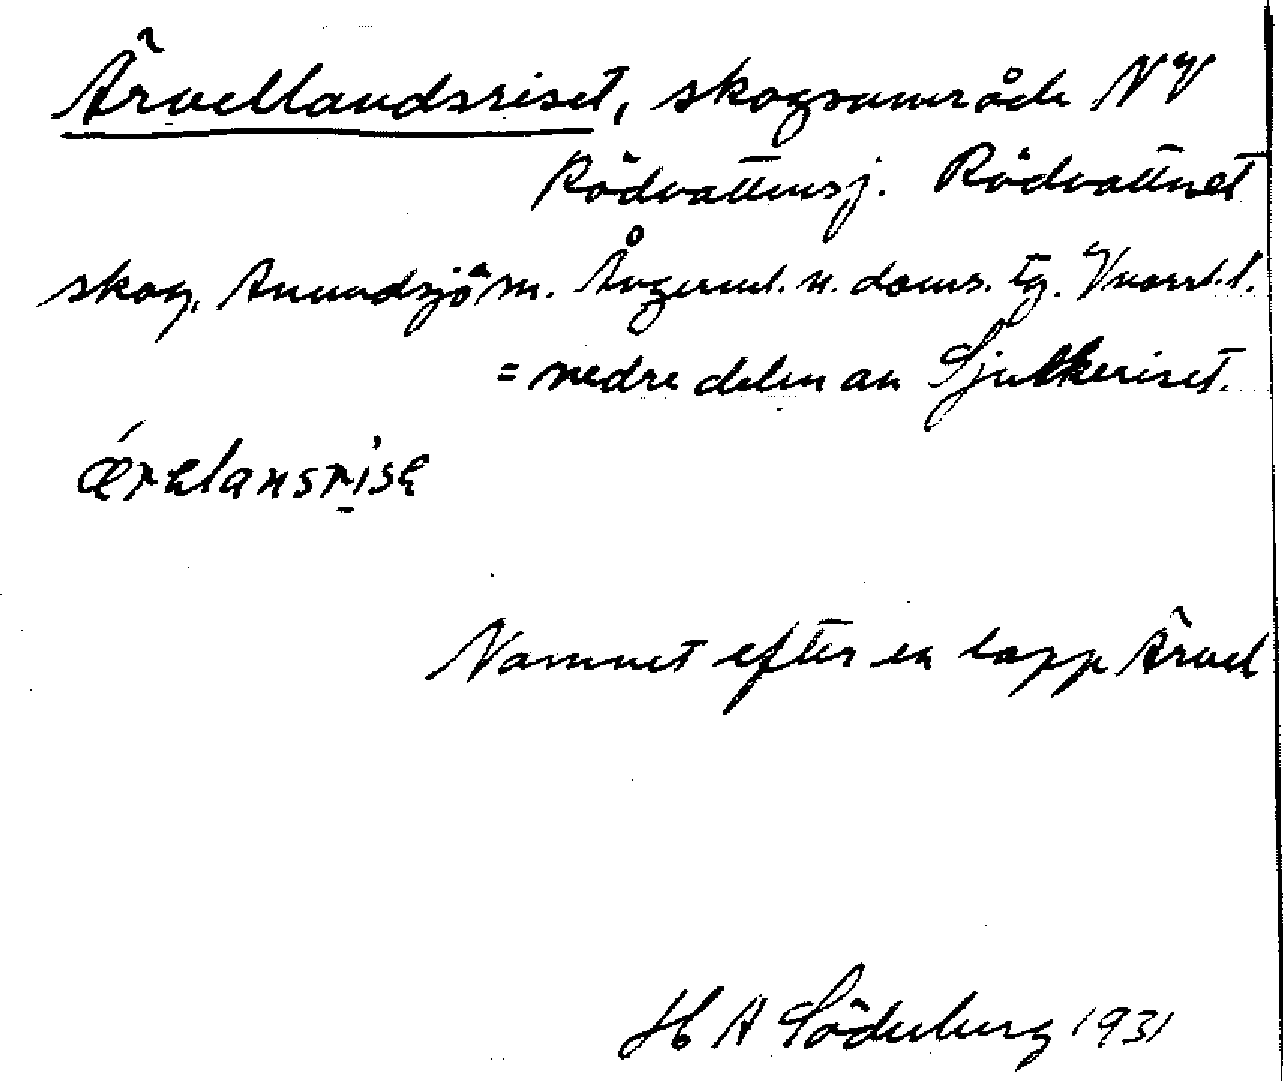 Ärvellandsriset, skogsområde NV
Rödvattensj. Rödvattnet
skog, Anundsjö sn. Ångerml. n. doms. tg. Vnorrl. l.
= nedre delen av Sjulkeriset.
Namnet efter en lapp Ärvel
H A Söderberg 1931